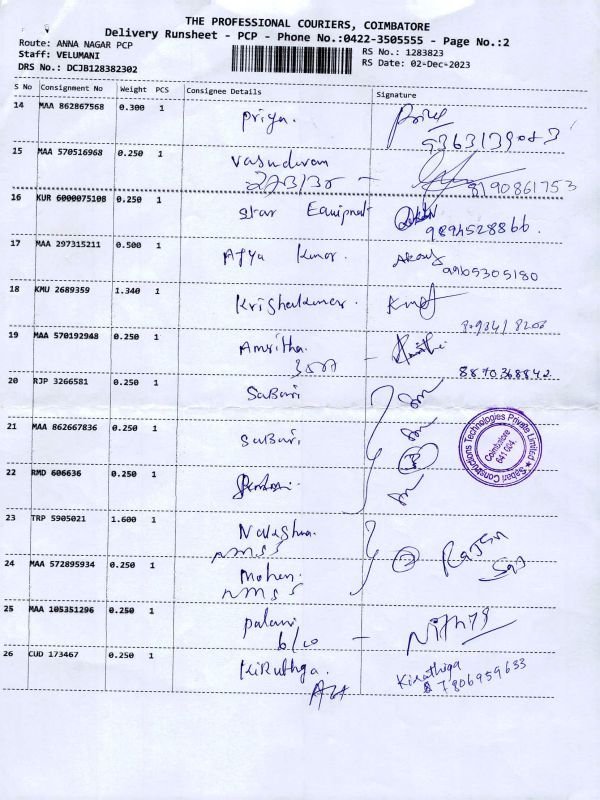 THE PROFESSIONAL COURIERS, COIMBATORE
Delivery Runsheet - PCP - Phone No.:0422-3505555 - Page No.:2
Route: ANNA NAGAR PCP
Staff: VELUMANI
DRS No.: DCJB128382302
RS No.: 1283823
RS Date: 02-Dec-2023
S No Consignment No Weight PCS Consignee Details Signature
14 MAA 862867568 0.300 1 Priya.
15 MAA 570516968 0.250 1
8190861753
16 KUR 6000075108 0.250 1 Star Equipment
9894528866.
17 MAA 297315211 0.500 1 Kumar.
9965305180
18 KMU 2689359 1.340 1 Krishnakumar.
19 MAA 570192948 0.250 1 Amritha.
8870368842
20 RJP 3266581 0.250 1 Sabari
21 MAA 862667836 0.250 1 Sabari,
22 RMD 606636 0.250 1
Sabari Constructions Technologies Private Limited
Coimbatore
641 004.
23 TRP 5905021 1.600 1
NMSS
Rajan
24 MAA 572895934 0.250 1 Mohan.
NMSS
25 MAA 105351296 0.250 1 Palani
6/10
Nithya
26 CUD 173467 0.250 1 Kiruthga.
Kiruthiga
7806959633